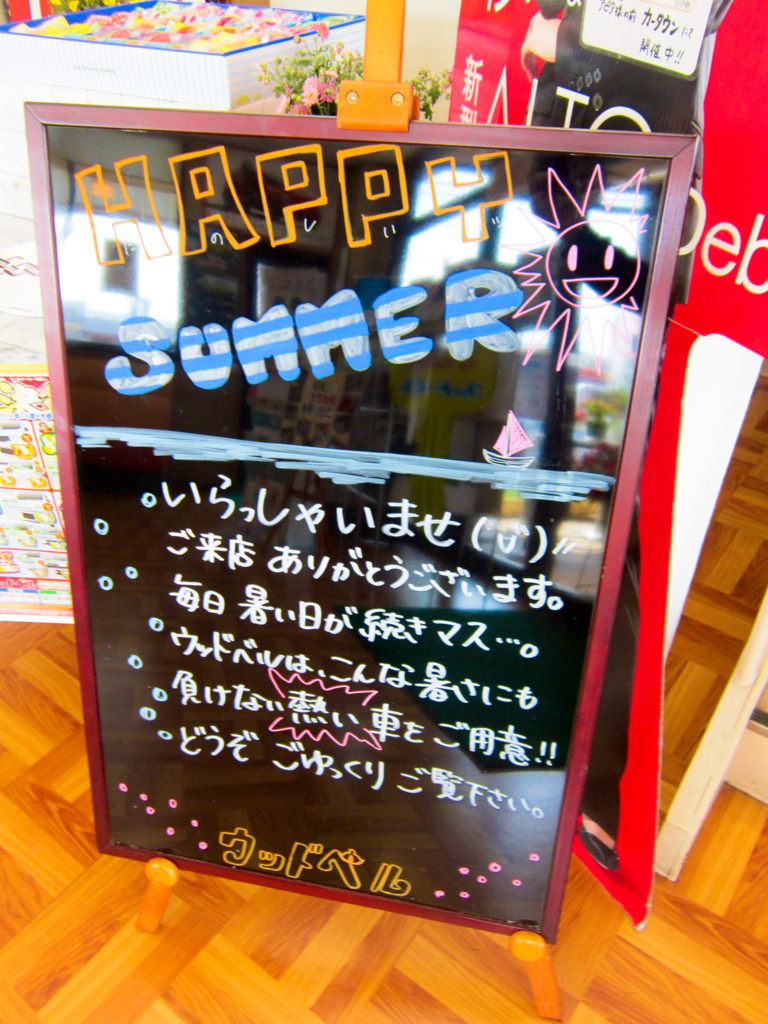 アピタ様の前 カータウンにて
開催中!!
新型
ALTO
Deb
HAPPY
SUMMER
いらっしゃいませ(ˇvˇ)〃
ご来店 ありがとうございます。
毎日 暑い日が 続きマス…。
ウッドベルは、こんな暑さにも
負けない 熱い 車をご用意!!
どうぞ ごゆっくり ご覧下さい。
ウッドベル